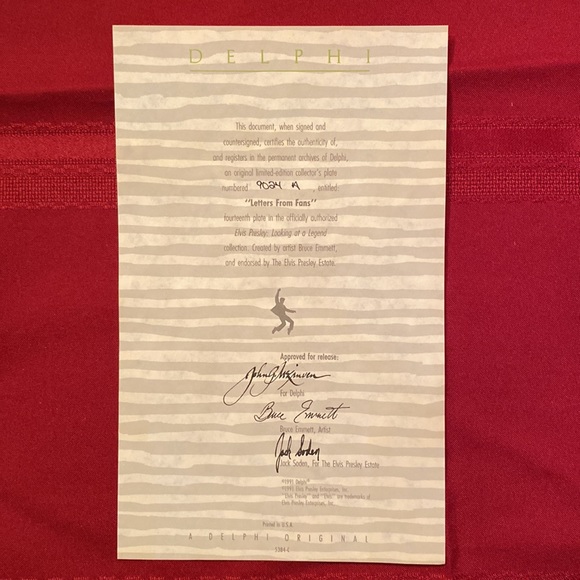 DELPHI
This document, when signed and
countersigned, certifies the authenticity of,
and registers in the permanent archives of Delphi,
an original limited-edition collector's plate
numbered 9024 A, entitled:
"Letters From Fans"
fourteenth plate in the officially authorized
Elvis Presley: Looking at a Legend
collection. Created by artist Bruce Emmett,
and endorsed by The Elvis Presley Estate.
Approved for release:
For Delphi
Bruce Emmett
Bruce Emmett, Artist
Jack Soden
Jack Soden, For The Elvis Presley Estate
Elvis Presley Enterprises, Inc.
"Elvis Presley" and "Elvis" are trademarks of
Elvis Presley Enterprises, Inc.
Printed in U.S.A.
A DELPHI ORIGINAL